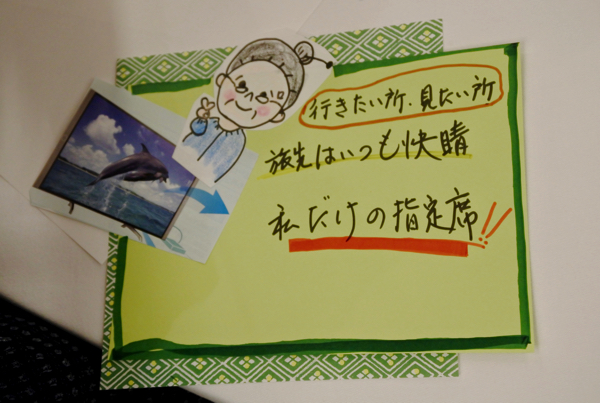 行きたい所、見たい所
旅先はいつも快晴
私だけの指定席!!